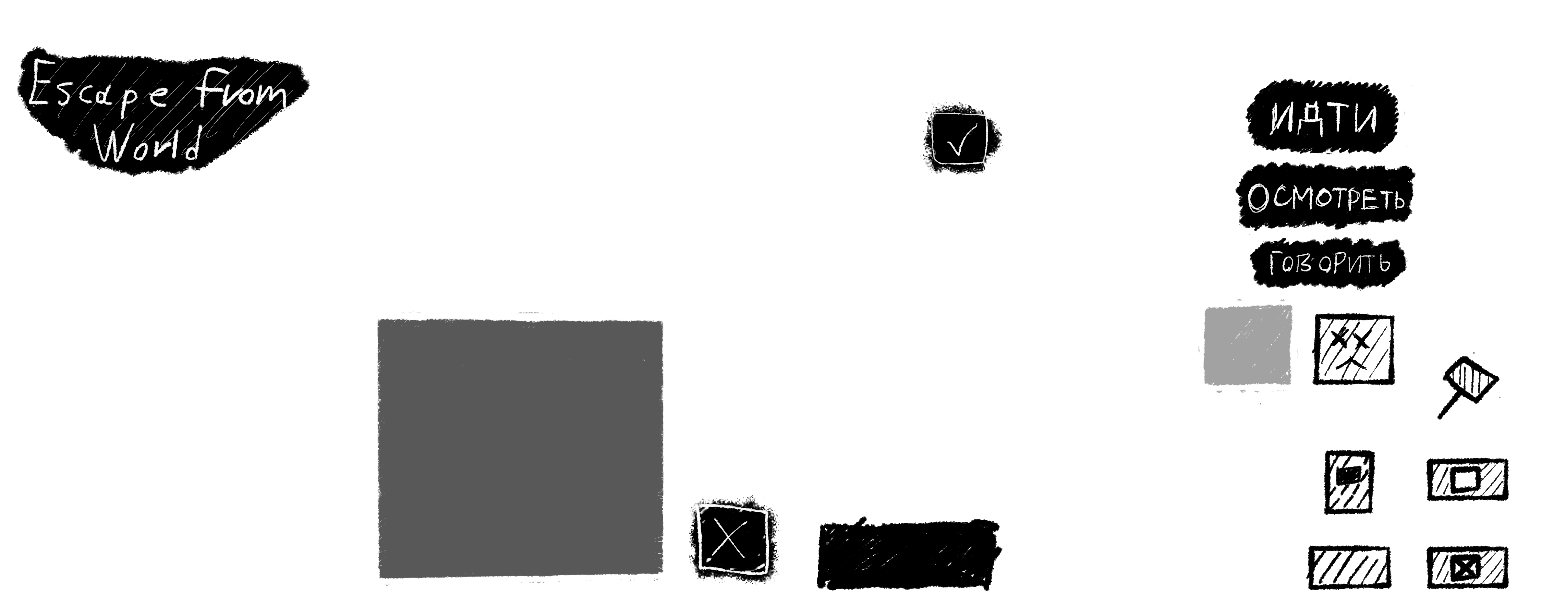 Escape from
World
ИДТИ
ОСМОТРЕТЬ
ГОВОРИТЬ